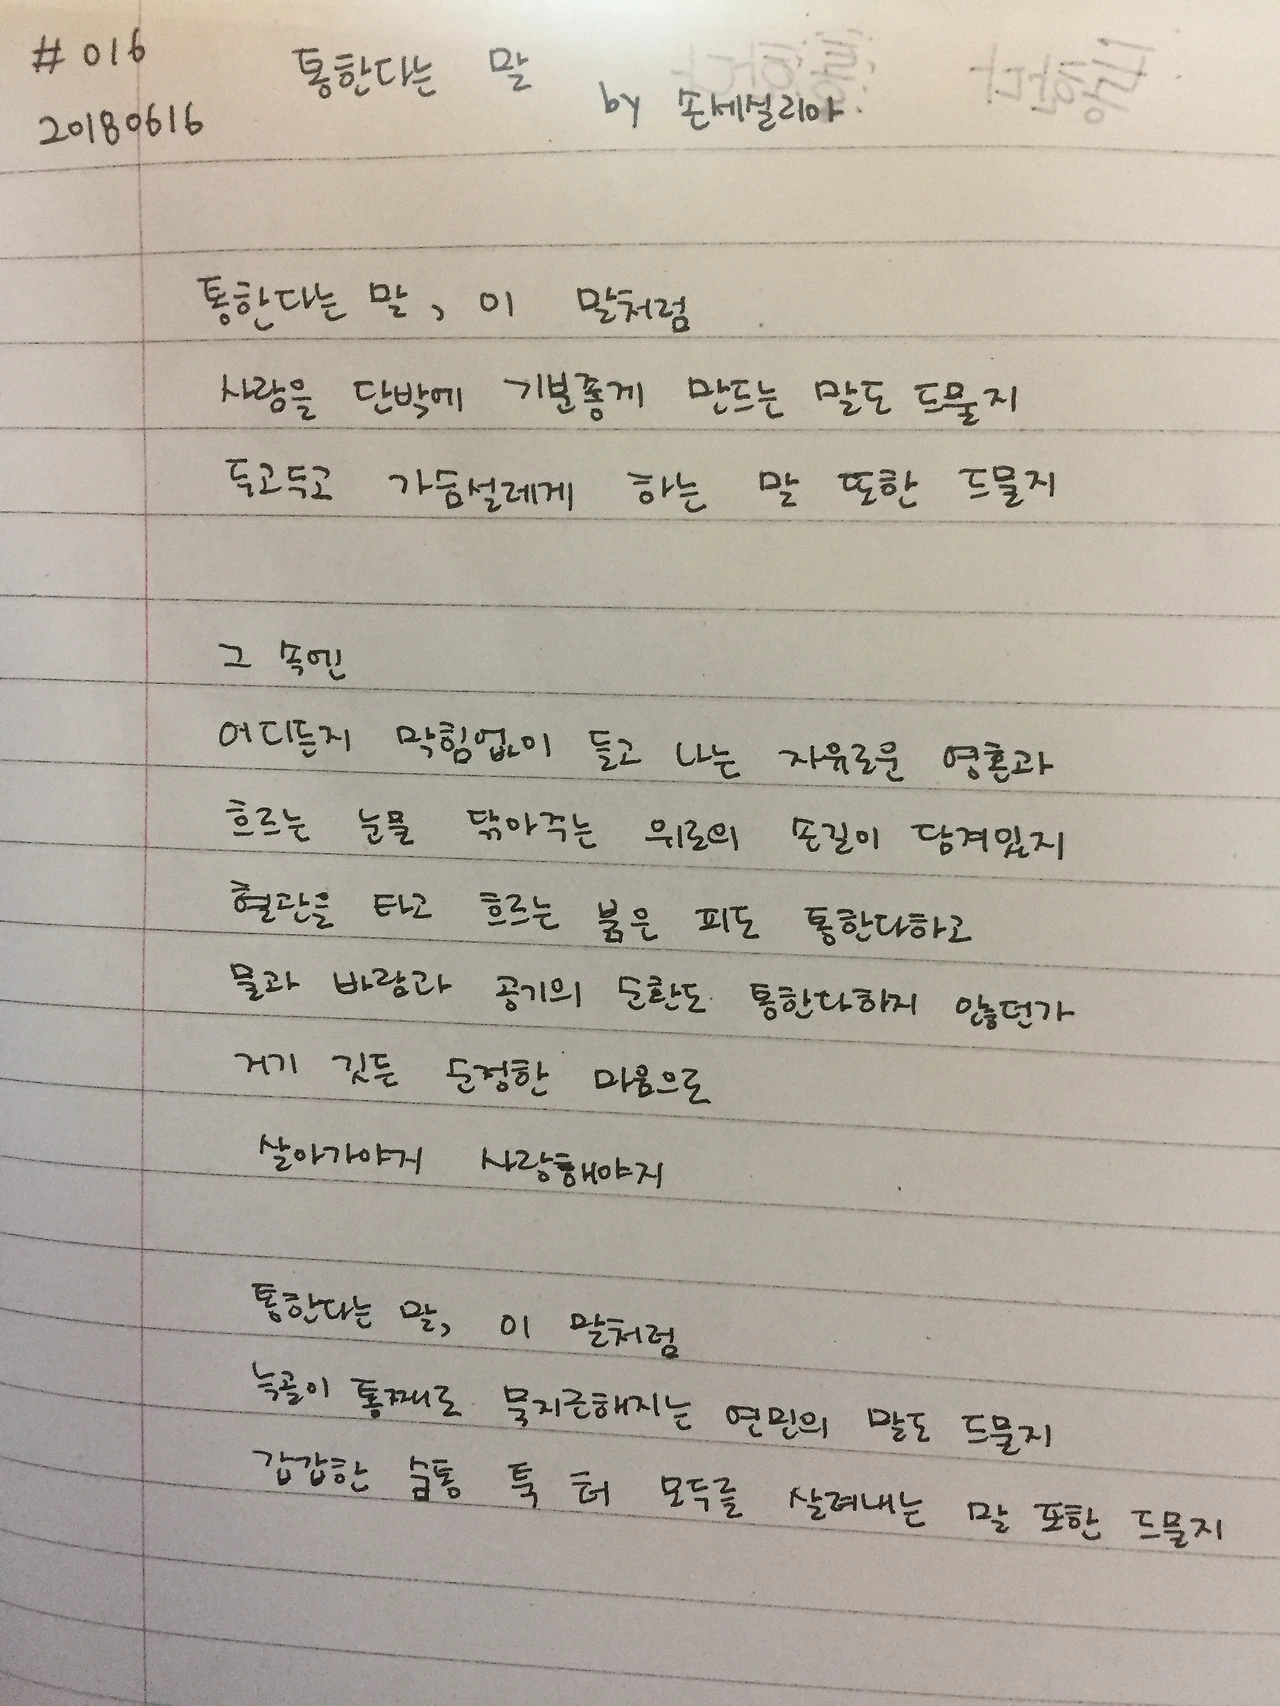 # 016
통한다는 말
20180616
by 손세실리아
통한다는 말, 이 말처럼
사랑을 단박에 기분좋게 만드는 말도 드물지
두고두고 가슴설레게 하는 말 또한 드물지
그 속엔
어디든지 막힘없이 들고 나는 자유로운 영혼과
흐르는 눈물 닦아주는 위로의 손길이 담겨있지
혈관을 타고 흐르는 붉은 피도 통한다하고
물과 바람과 공기의 순환도 통한다하지 않던가
거기 깃든 순정한 마음으로
살아가야지 사랑해야지
통한다는 말, 이 말처럼
늑골이 통째로 묵지근해지는 연민의 말도 드물지
갑갑한 숨통 툭 터 모두를 살려내는 말 또한 드물지